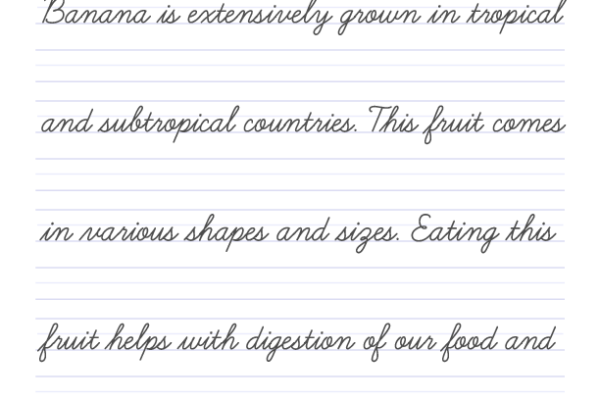 Banana is extensively grown in tropical
and subtropical countries. This fruit comes
in various shapes and sizes. Eating this
fruit helps with digestion of our food and